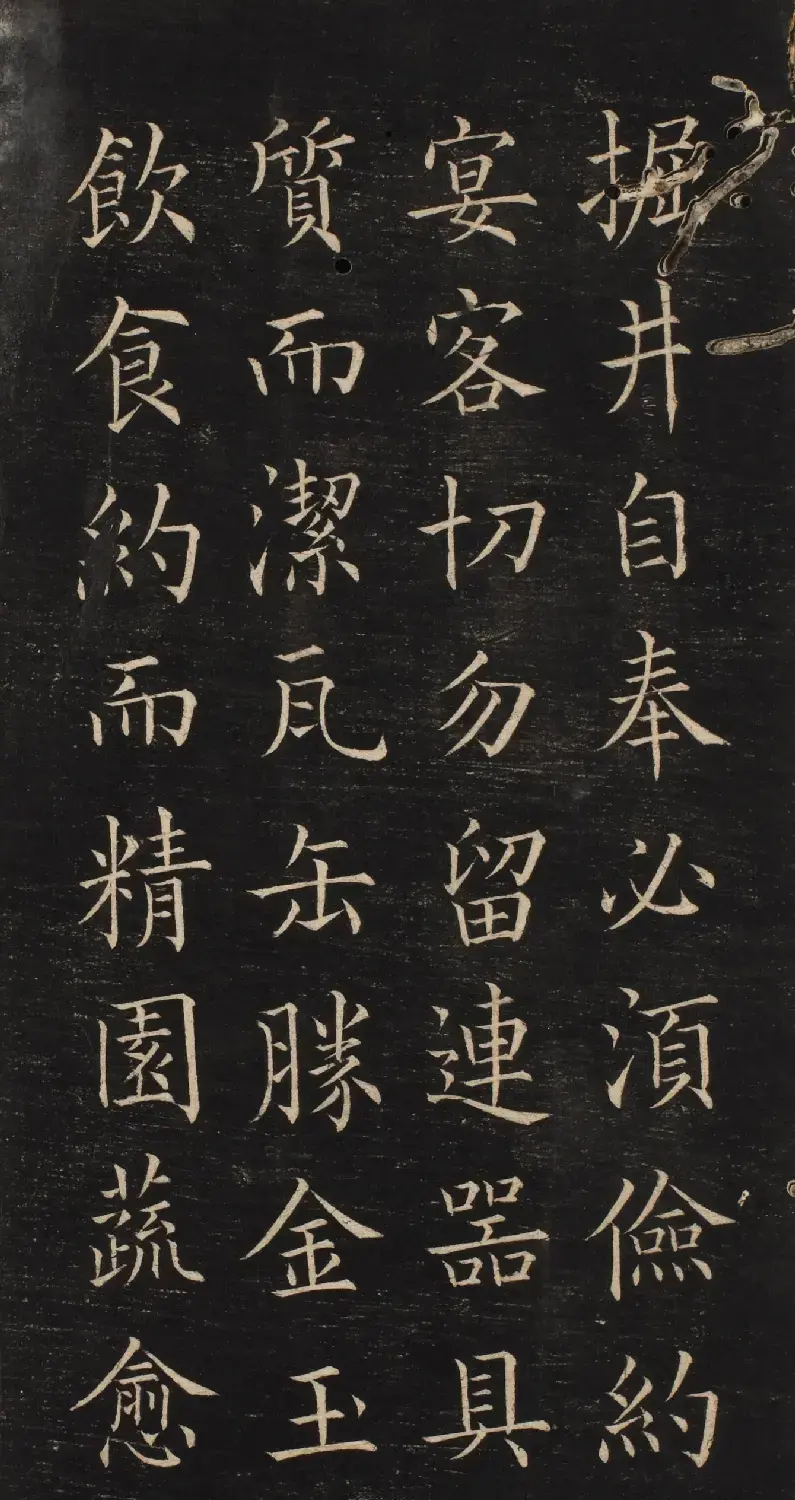 掘井自奉必湏儉約
宴客切勿留連器具
質而潔瓦缶勝金玉
飲食約而精園蔬愈